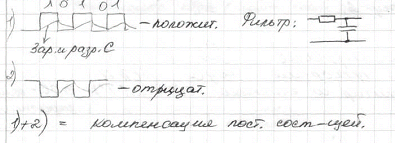 1 0 1 0 1
1) – положит. Фильтр:
Зар. и разр. С
2) – отрицат.
1)+2) = компенсация пост. сост-щей.